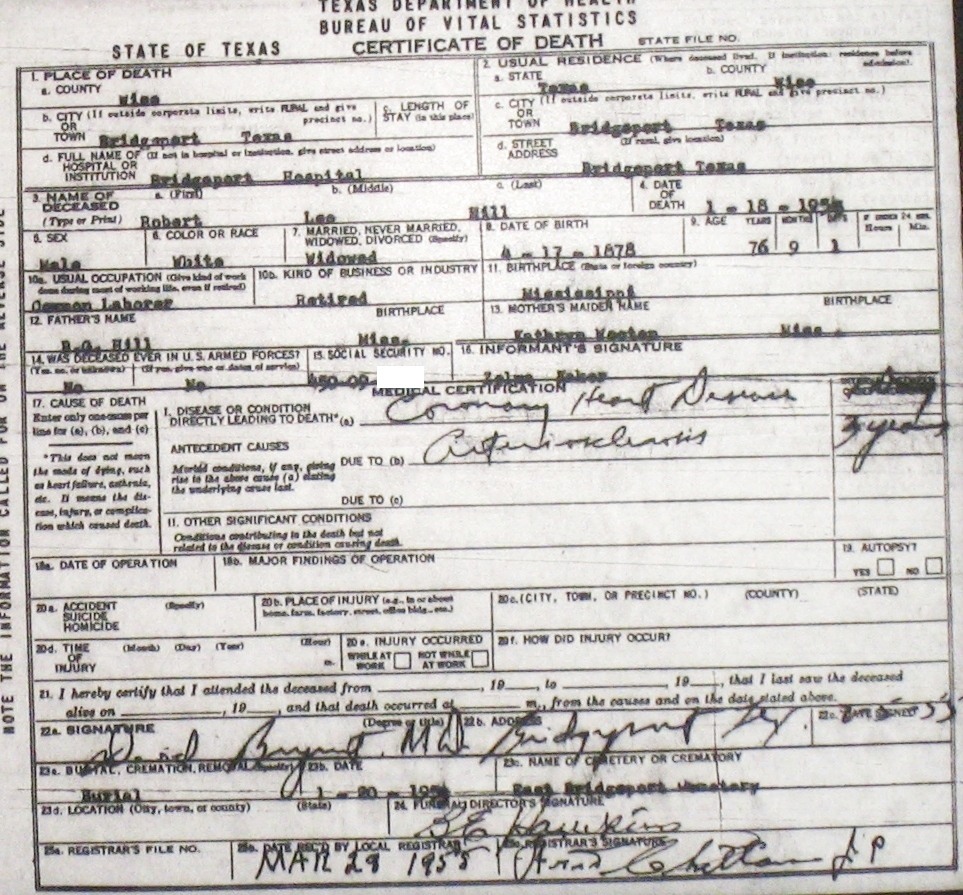 TEXAS DEPARTMENT OF HEALTH
BUREAU OF VITAL STATISTICS
STATE OF TEXAS CERTIFICATE OF DEATH STATE FILE NO.
1. PLACE OF DEATH
a. COUNTY
Wise
2. USUAL RESIDENCE (Where deceased lived. If institution: residence before admission).
a. STATE b. COUNTY
Texas Wise
b. CITY (If outside corporate limits, write RURAL and give precinct no.)
OR
TOWN Bridgeport Texas
c. LENGTH OF
STAY (in this place)
c. CITY (If outside corporate limits, write RURAL and give precinct no.)
OR
TOWN Bridgeport Texas
d. FULL NAME OF (If not in hospital or institution, give street address or location)
HOSPITAL OR
INSTITUTION Bridgeport Hospital
d. STREET (If rural, give location)
ADDRESS Bridgeport Texas
3. NAME OF a. (First) b. (Middle) c. (Last)
DECEASED
(Type or Print) Robert Lee Hill
4. DATE
OF
DEATH 1 - 18 - 195
5. SEX
Male
6. COLOR OR RACE
White
7. MARRIED, NEVER MARRIED,
WIDOWED, DIVORCED (Specify)
Widowed
8. DATE OF BIRTH
4 - 17 - 1878
9. AGE YEARS MONTHS DAYS IF UNDER 24 HRS.
Hours Min.
76 9 1
10a. USUAL OCCUPATION (Give kind of work
done during most of working life, even if retired)
Common Laborer
10b. KIND OF BUSINESS OR INDUSTRY
Retired
11. BIRTHPLACE (State or foreign country)
Mississippi
12. FATHER'S NAME BIRTHPLACE
Hill Miss.
13. MOTHER'S MAIDEN NAME BIRTHPLACE
Kathryn Miss.
14. WAS DECEASED EVER IN U.S. ARMED FORCES?
(Yes, no, or unknown) (If yes, give war or dates of service)
No No
15. SOCIAL SECURITY NO.
450-09-
16. INFORMANT'S SIGNATURE
MEDICAL CERTIFICATION
17. CAUSE OF DEATH
Enter only one cause per
line for (a), (b), and (c)
*This does not mean
the mode of dying, such
as heart failure, asthenia,
etc. It means the dis-
ease, injury, or complica-
tion which caused death.
I. DISEASE OR CONDITION
DIRECTLY LEADING TO DEATH* (a) Coronary Heart Disease
ANTECEDENT CAUSES
Morbid conditions, if any, giving
rise to the above cause (a) stating
the underlying cause last.
DUE TO (b) Arteriosclerosis
3 years
DUE TO (c)
11. OTHER SIGNIFICANT CONDITIONS
Conditions contributing to the death but not
related to the disease or condition causing death.
18a. DATE OF OPERATION
18b. MAJOR FINDINGS OF OPERATION
19. AUTOPSY?
YES NO
20a. ACCIDENT (Specify)
SUICIDE
HOMICIDE
20b. PLACE OF INJURY (e.g., in or about
home, farm, factory, street, office bldg., etc.)
20c. (CITY, TOWN, OR PRECINCT NO.) (COUNTY) (STATE)
20d. TIME (Month) (Day) (Year) (Hour)
OF
INJURY m.
20e. INJURY OCCURRED
WHILE AT WORK NOT WHILE AT WORK
20f. HOW DID INJURY OCCUR?
21. I hereby certify that I attended the deceased from , 19 , to , 19 , that I last saw the deceased
alive on , 19 , and that death occurred at m., from the causes and on the date stated above.
22a. SIGNATURE (Degree or title)
Bryant, M.D.
22b. ADDRESS
Bridgeport Tex.
22c. DATE SIGNED
23a. BURIAL, CREMATION, REMOVAL (Specify)
Burial
23b. DATE
1 - 20 - 195
23c. NAME OF CEMETERY OR CREMATORY
East Bridgeport Cemetery
23d. LOCATION (City, town, or county) (State)
24. FUNERAL DIRECTOR'S SIGNATURE
B E Hawkins
25a. REGISTRAR'S FILE NO.
25b. DATE REC'D BY LOCAL REGISTRAR
MAR 28 1955
25c. REGISTRAR'S SIGNATURE
J P
NOTE THE INFORMATION CALLED FOR ON THE REVERSE SIDE